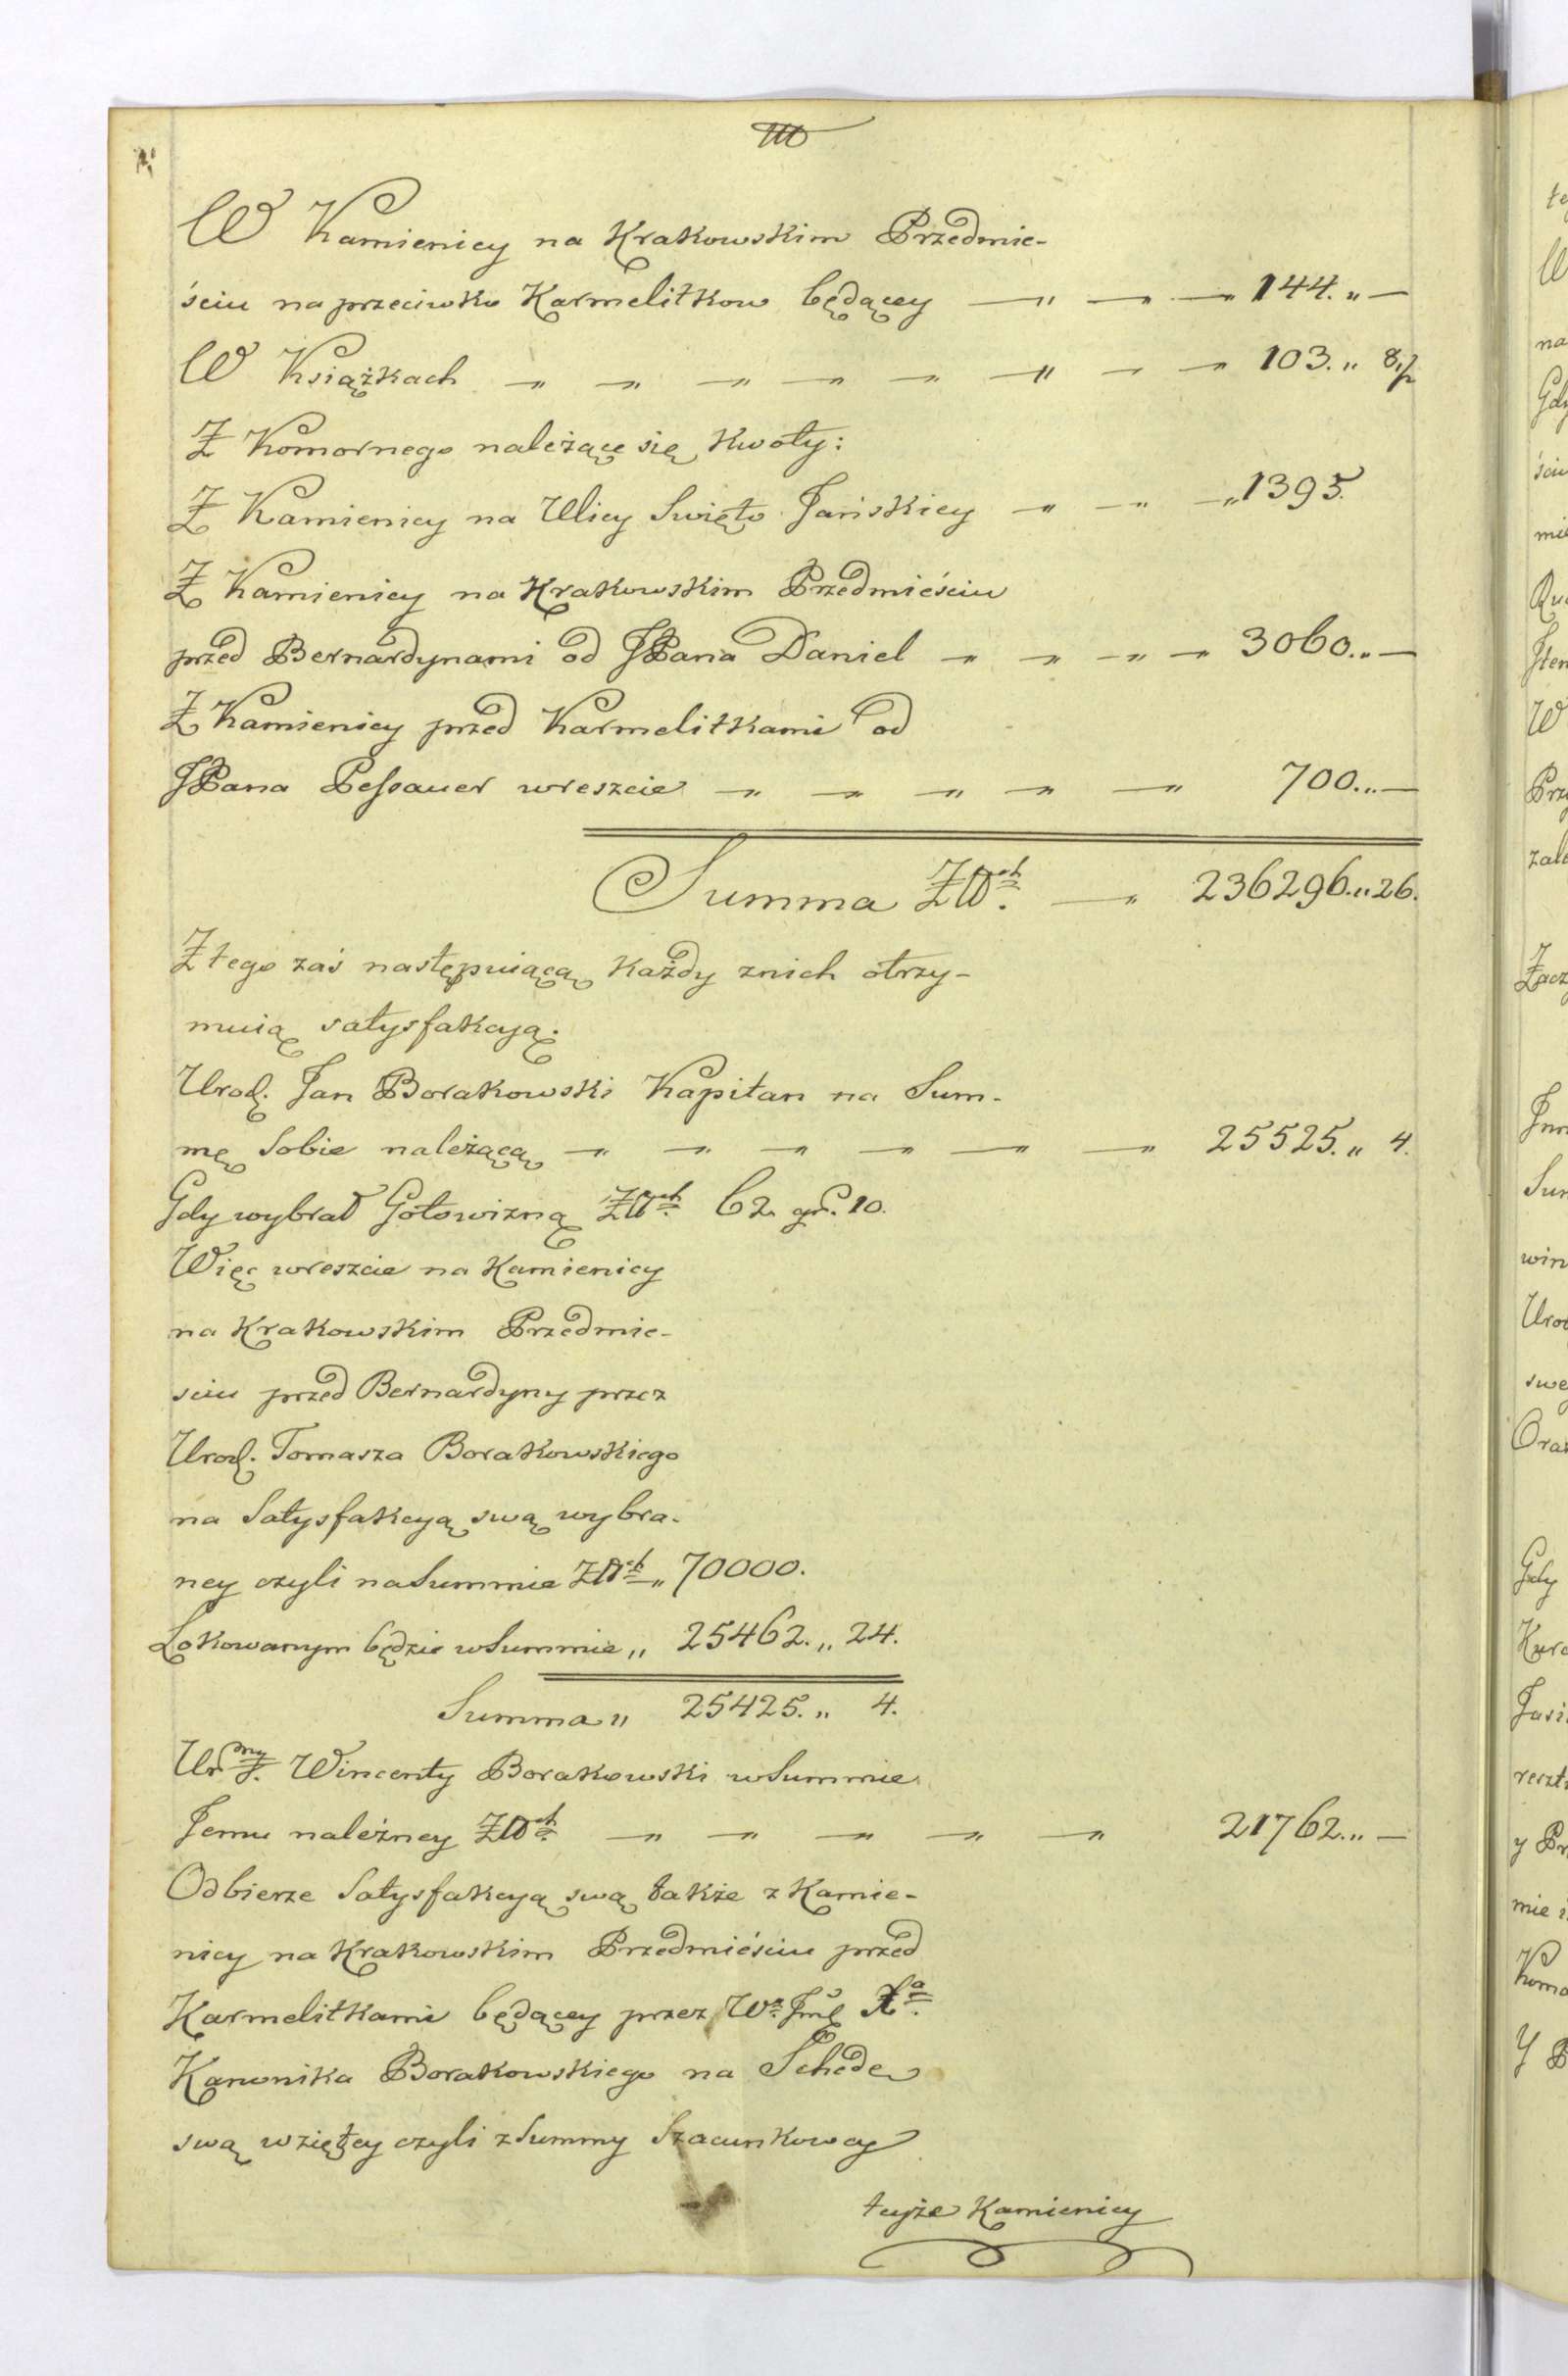 W Kamienicy na Krakowskim Przedmie-
ściu na przeciwko Karmelitkow będącey — „ — „ — „ 144. „ —
W Książkach — „ — „ — „ — „ — „ — „ — „ — „ 103. „ 8 ½
Z Komornego należące się Kwoty:
Z Kamienicy na Ulicy Swięto Jańskiey — „ — „ — „ 1395.
Z Kamienicy na Krakowskim Przedmieściu
przed Bernardynami od JPana Daniel — „ — „ — „ — „ 3060. „ —
Z Kamienicy przed Karmelitkami od
JPana Pessauer wreszcie — „ — „ — „ — „ — „ 700. „ —
Summa Złłch. — „ 236296. „ 26.
Z tego zaś następuiącą każdy znich otrzy-
muią satysfakcyą.
Urod. Jan Borakowski Kapitan na Sum-
mę Sobie należącą — „ — „ — „ — „ — „ — „ 25525. „ 4.
Gdy wybrał Gotowizną Złłch. 62. gr. 10.
Więc wreszcie na Kamienicy
na Krakowskim Przedmie-
sciu przed Bernardyny przez
Urod. Tomasza Borakowskiego
na Satysfakcyą swą wybra-
ney czyli na Summie Złłch. „ 70000.
Lokowanym będzie w Summie „ 25462. „ 24.
Summa „ 25425. „ 4.
Ur. my. Wincenty Borakowski w Summie
Jemu należney Złłch. — „ — „ — „ — „ — „ 21762. „ —
Odbierze Satysfakcyą swą także z Kamie-
nicy na Krakowskim Przedmieściu przed
Karmelitkami będącey przez W. Jmć Xa.
Kanonika Borakowskiego na Schedę
swą wziętey czyli z Summy Szacunkowey
teyże Kamienicy